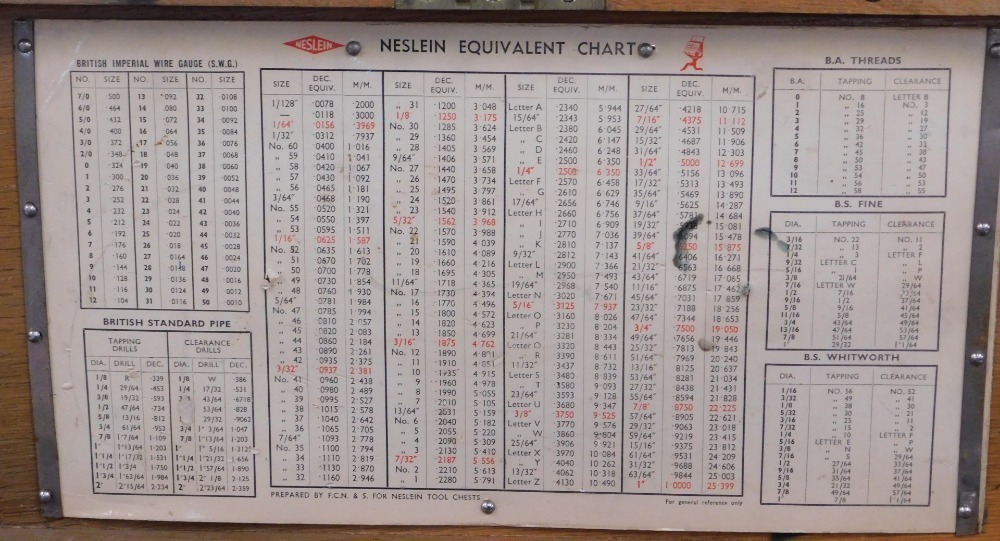 NESLEIN
NESLEIN EQUIVALENT CHART
BRITISH IMPERIAL WIRE GAUGE (S.W.G.)
NO. SIZE NO. SIZE NO. SIZE
7/0 ·500 13 ·092 32 ·0108
6/0 ·464 14 ·080 33 ·0100
5/0 ·432 15 ·072 34 ·0092
4/0 ·400 16 ·064 35 ·0084
3/0 ·372 17 ·056 36 ·0076
2/0 ·348 18 ·048 37 ·0068
0 ·324 19 ·040 38 ·0060
1 ·300 20 ·036 39 ·0052
2 ·276 21 ·032 40 ·0048
3 ·252 22 ·028 41 ·0044
4 ·232 23 ·024 42 ·0040
5 ·212 24 ·022 43 ·0036
6 ·192 25 ·020 44 ·0032
7 ·176 26 ·018 45 ·0028
8 ·160 27 ·0164 46 ·0024
9 ·144 28 ·0148 47 ·0020
10 ·128 29 ·0136 48 ·0016
11 ·116 30 ·0124 49 ·0012
12 ·104 31 ·0116 50 ·0010
BRITISH STANDARD PIPE
TAPPING DRILLS CLEARANCE DRILLS
DIA. DRILL DEC. DIA. DRILL DEC.
1/8 R ·339 1/8 W ·386
1/4 29/64 ·453 1/4 17/32 ·531
3/8 19/32 ·593 3/8 43/64 ·6718
1/2 47/64 ·734 1/2 53/64 ·828
5/8 13/16 ·812 5/8 29/32 ·9062
3/4 61/64 ·953 3/4 1" 3/64 1·047
7/8 1"7/64 1·109 7/8 1"13/64 1·203
1" 1"13/64 1·203 1" 1" 5/16 1·312
1"1/4 1"17/32 1·531 1"1/4 1"21/32 1·656
1"1/2 1"3/4 1·750 1"1/2 1"57/64 1·890
1"3/4 1"63/64 1·984 1"3/4 2" 1/8 2·125
2" 2"15/64 2·234 2" 2"23/64 2·359
SIZE DEC. EQUIV. M/M.
1/128" ·0078 ·2000
— ·0118 ·3000
1/64" ·0156 ·3969
1/32" ·0312 ·7937
No. 60 ·0400 1·016
„ 59 ·0410 1·041
„ 58 ·0420 1·067
„ 57 ·0430 1·092
„ 56 ·0465 1·181
3/64" ·0468 1·190
No. 55 ·0520 1·321
„ 54 ·0550 1·397
„ 53 ·0595 1·511
1/16" ·0625 1·587
No. 52 ·0635 1·613
„ 51 ·0670 1·702
„ 50 ·0700 1·778
„ 49 ·0730 1·854
„ 48 ·0760 1·930
5/64" ·0781 1·984
No. 47 ·0785 1·994
„ 46 ·0810 2·057
„ 45 ·0820 2·083
„ 44 ·0860 2·184
„ 43 ·0890 2·261
„ 42 ·0935 2·375
3/32" ·0937 2·381
No. 41 ·0960 2·438
„ 40 ·0980 2·489
„ 39 ·0995 2·527
„ 38 ·1015 2·578
„ 37 ·1040 2·642
„ 36 ·1065 2·705
7/64" ·1093 2·778
No. 35 ·1100 2·794
„ 34 ·1110 2·819
„ 33 ·1130 2·870
„ 32 ·1160 2·946
SIZE DEC. EQUIV. M/M.
„ 31 ·1200 3·048
1/8" ·1250 3·175
No. 30 ·1285 3·624
„ 29 ·1360 3·454
„ 28 ·1405 3·569
9/64" ·1406 3·571
No. 27 ·1440 3·658
„ 26 ·1470 3·734
„ 25 ·1495 3·797
„ 24 ·1520 3·861
„ 23 ·1540 3·912
5/32" ·1562 3·968
No. 22 ·1570 3·988
„ 21 ·1590 4·039
„ 20 ·1610 4·089
„ 19 ·1660 4·216
„ 18 ·1695 4·305
11/64" ·1718 4·365
No. 17 ·1730 4·394
„ 16 ·1770 4·496
„ 15 ·1800 4·572
„ 14 ·1820 4·623
„ 13 ·1850 4·699
3/16" ·1875 4·762
No. 12 ·1890 4·801
„ 11 ·1910 4·851
„ 10 ·1935 4·915
„ 9 ·1960 4·978
„ 8 ·1990 5·055
„ 7 ·2010 5·105
13/64" ·2031 5·159
No. 6 ·2040 5·182
„ 5 ·2055 5·220
„ 4 ·2090 5·309
„ 3 ·2130 5·410
7/32" ·2187 5·556
No. 2 ·2210 5·613
„ 1 ·2280 5·791
SIZE DEC. EQUIV. M/M.
Letter A ·2340 5·944
15/64" ·2343 5·953
Letter B ·2380 6·045
„ C ·2420 6·147
„ D ·2460 6·248
„ E ·2500 6·350
1/4" ·2500 6·350
Letter F ·2570 6·458
„ G ·2610 6·629
17/64" ·2656 6·746
Letter H ·2660 6·756
„ I ·2710 6·909
„ J ·2770 7·036
„ K ·2810 7·137
9/32" ·2812 7·143
Letter L ·2900 7·366
„ M ·2950 7·493
19/64" ·2968 7·540
Letter N ·3020 7·671
5/16" ·3125 7·937
Letter O ·3160 8·026
„ P ·3230 8·204
21/64" ·3281 8·334
Letter Q ·3320 8·443
„ R ·3390 8·611
11/32" ·3437 8·732
Letter S ·3480 8·839
„ T ·3580 9·093
23/64" ·3593 9·128
Letter U ·3680 9·347
3/8" ·3750 9·525
Letter V ·3770 9·576
„ W ·3860 9·804
25/64" ·3906 9·921
Letter X ·3970 10·084
„ Y ·4040 10·262
13/32" ·4062 10·318
Letter Z ·4130 10·490
SIZE DEC. EQUIV. M/M.
27/64" ·4218 10·715
7/16" ·4375 11·112
29/64" ·4531 11·509
15/32" ·4687 11·906
31/64" ·4843 12·303
1/2" ·5000 12·699
33/64" ·5156 13·096
17/32" ·5313 13·493
35/64" ·5469 13·890
9/16" ·5625 14·287
37/64" ·5781 14·684
19/32" 15·081
39/64" 15·478
5/8" 15·875
41/64" ·6406 16·271
21/32" 16·668
43/64" ·6719 17·065
11/16" ·6875 17·462
45/64" ·7031 17·859
23/32" ·7188 18·256
47/64" ·7344 18·653
3/4" ·7500 19·050
49/64" ·7656 19·446
25/32" ·7813 19·843
51/64" ·7969 20·240
13/16" ·8125 20·637
53/64" ·8281 21·034
27/32" ·8438 21·431
55/64" ·8594 21·828
7/8" ·8750 22·225
57/64" ·8905 22·621
29/32" ·9063 23·018
59/64" ·9219 23·415
15/16" ·9375 23·812
61/64" ·9531 24·209
31/32" ·9688 24·606
63/64" ·9844 25·003
1" 1·0000 25·399
PREPARED BY F.C.N. & S. FOR NESLEIN TOOL CHESTS
For general reference only
B.A. THREADS
B.A. TAPPING CLEARANCE
0 NO. 8 LETTER B
1 „ 16 NO. 3
2 „ 25 „ 12
3 „ 29 „ 19
4 „ 32 „ 27
5 „ 36 „ 30
6 „ 42 „ 33
7 „ 45 „ 38
8 „ 50 „ 43
9 „ 53 „ 47
10 „ 54 „ 50
11 „ 56 „ 53
12 „ 58 „ 55
B.S. FINE
DIA. TAPPING CLEARANCE
3/16 NO. 22 NO. 11
7/32 „ 13 „ 2
1/4 „ 3 LETTER F
9/32 LETTER C „ L
5/16 „ I „ P
3/8 21/64 „ W
7/16 LETTER W 29/64
1/2 7/16 33/64
9/16 1/2 37/64
5/8 9/16 41/64
11/16 5/8 45/64
3/4 43/64 49/64
13/16 47/64 53/64
7/8 51/64 57/64
1" 29/32 1"1/64
B.S. WHITWORTH
DIA. TAPPING CLEARANCE
1/16 NO. 56 NO. 52
3/32 „ 49 „ 41
1/8 „ 38 „ 30
5/32 „ 30 „ 21
3/16 „ 25 „ 11
7/32 „ 15 „ 2
1/4 „ 10 LETTER F
5/16 LETTER E „ P
3/8 „ N „ W
7/16 „ S 29/64
1/2 27/64 33/64
9/16 31/64 37/64
5/8 35/64 41/64
3/4 21/32 49/64
7/8 49/64 57/64
1" 7/8 1"1/64